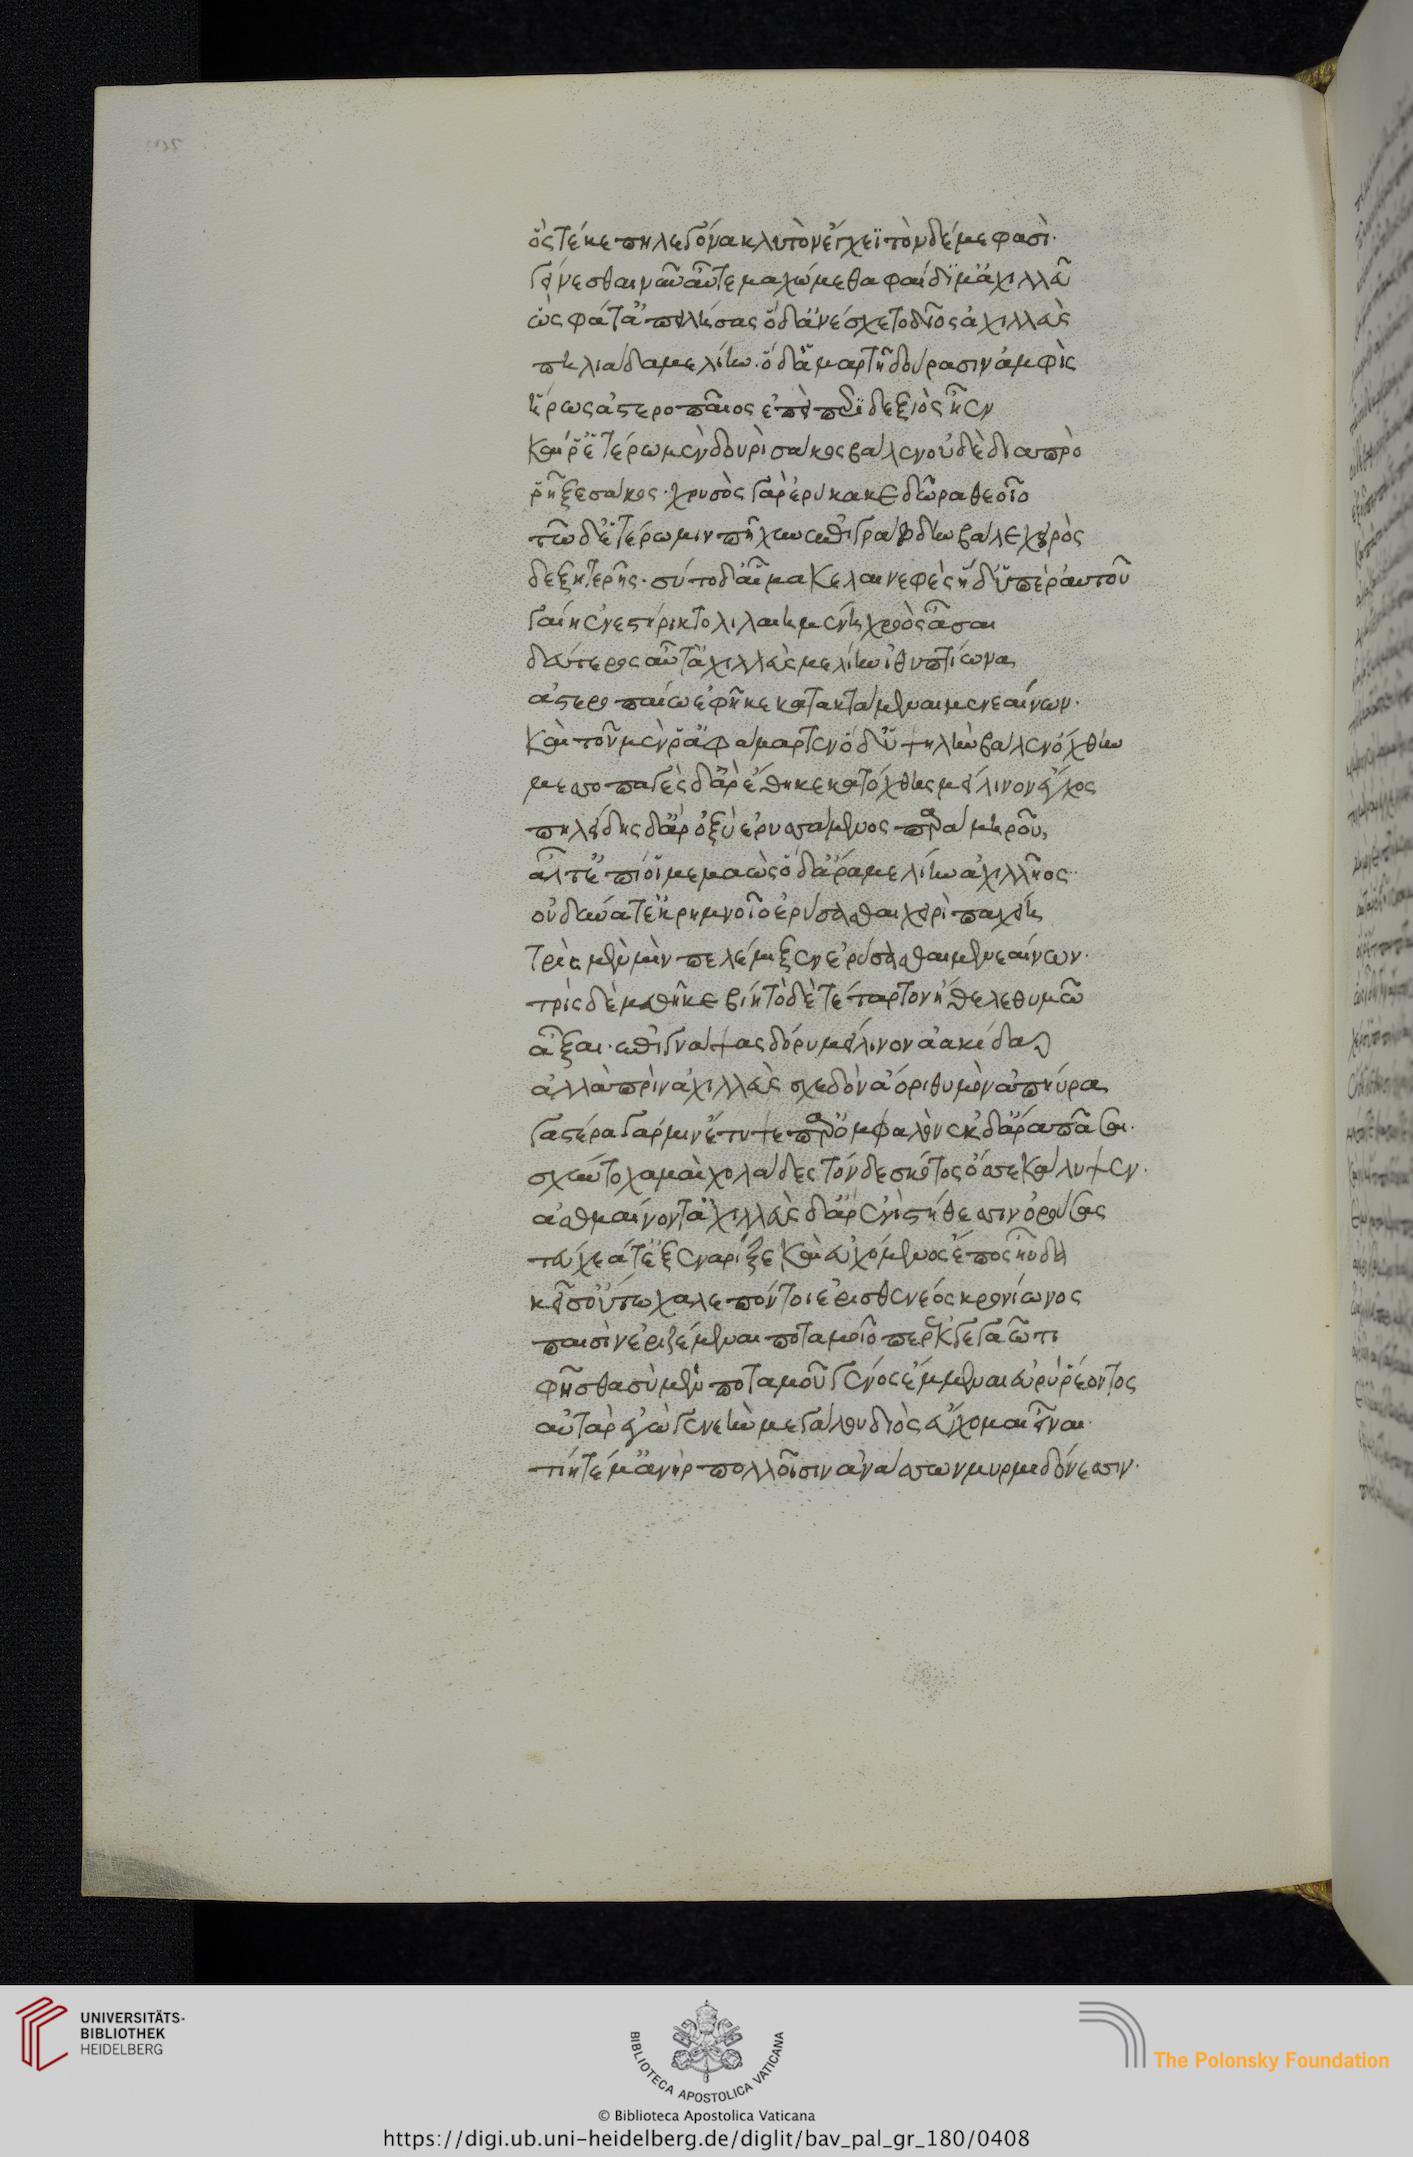 ὅς τέκε πηλεγόνα κλυτὸν ἔγχεϊ τὸν δέ με φασὶ·
γείνεσθαι νῦν αὖτε μαχώμεθα φαίδιμ' ἀχιλλεῦ
ὣς φάτ' ἀπειλήσας ὁ δ' ἀνέσχετο δῖος ἀχιλλεὺς
πηλιάδα μελίην. ὁ δ' ἁμαρτῆ δούρασιν ἀμφὶς
ἥρως ἀστεροπαῖος ἐπεὶ περιδέξιὸς ἦεν
καί ῥ' ἑτέρω μὲν δουρὶ σάκος βάλεν οὐδὲ διαπρὸ
ῥῆξε σάκος· χρυσὸς γὰρ ἐρύκακε δῶρα θεοῖο
τῶ δ' ἑτέρω μιν πῆχυν ἐπιγράβδην βάλε χειρὸς
δεξιτερῆς· σύτο δ' αἷμα κελαινεφὲς ἡ δ' ὑπὲρ αὐτοῦ
γαίη ἐνεστήρικτο λιλαιομένη χροὸς ἆσαι
δεύτερος αὖτ' ἀχιλεὺς μελίην ἰθυπτίωνα
ἀστεροπαίω ἐφῆκε κατακτάμεναι μενεαίνων·
καὶ τοῦ μέν ῥ' ἀφάμαρτεν ὁ δ' ὑψηλὴν βάλεν ὄχθην
μεσσοπαγὲς δ' ἄρ' ἔθηκε κατ' ὄχθης μείλινον ἔγχος
πηλείδης δ' ἄορ ὀξὺ ἐρυσσάμενος παρὰ μηροῦ,
ἆλτ' ἐπί οἱ μεμαὼς ὁ δ' ἄρα μελίην ἀχιλλῆος
οὐ δύνατ' ἐκ κρημνοῖο ἐρύσσασθαι χειρὶ παχείη
τρὶς μέν μιν πελέμιξεν ἐρύσσασθαι μενεαίνων·
τρὶς δὲ μεθῆκε βίη τὸ δὲ τέταρτον ἤθελε θυμῶ
ἆξαι· ἐπιγνάψας δόρυ μείλινον αἰακίδαο
ἀλλὰ πρὶν ἀχιλλεὺς σχεδὸν ἄορι θυμὸν ἀπηύρα
γαστέρα γάρ μιν ἔτυψε παρ' ὀμφαλὸν ἐκ δ' ἄρα πᾶσαι·
σχύντο χαμαὶ χολάδες τόν δε σκότος ὄσσε κάλυψεν·
ἀσθμαίνοντ' ἀχιλλεὺς δ' ἄρ' ἐνὶ στήθεσσιν ὀρούσας
τεύχεά τ' ἐξενάριξε καὶ εὐχόμενος ἔπος ηὔδα
κεῖσ' οὕτω χαλεπόν τοι ἐρισθενέος κρονίωνος
παισὶν ἐριζέμεναι ποταμοῖο περ ἐκγεγαῶτι
φῆσθα σὺ μὲν ποταμοῦ γένος ἔμμεναι εὐρὺ ῥέοντος
αὐτὰρ ἐγὼ γενεὴν μεγάλου διὸς εὔχομαι εἶναι·
τίκτέ μ' ἀνὴρ πολλοῖσιν ἀνάσσων μυρμιδόνεσσιν·
UNIVERSITÄTS-
BIBLIOTHEK
HEIDELBERG
BIBLIOTECA APOSTOLICA VATICANA
The Polonsky Foundation
© Biblioteca Apostolica Vaticana
https://digi.ub.uni-heidelberg.de/diglit/bav_pal_gr_180/0408